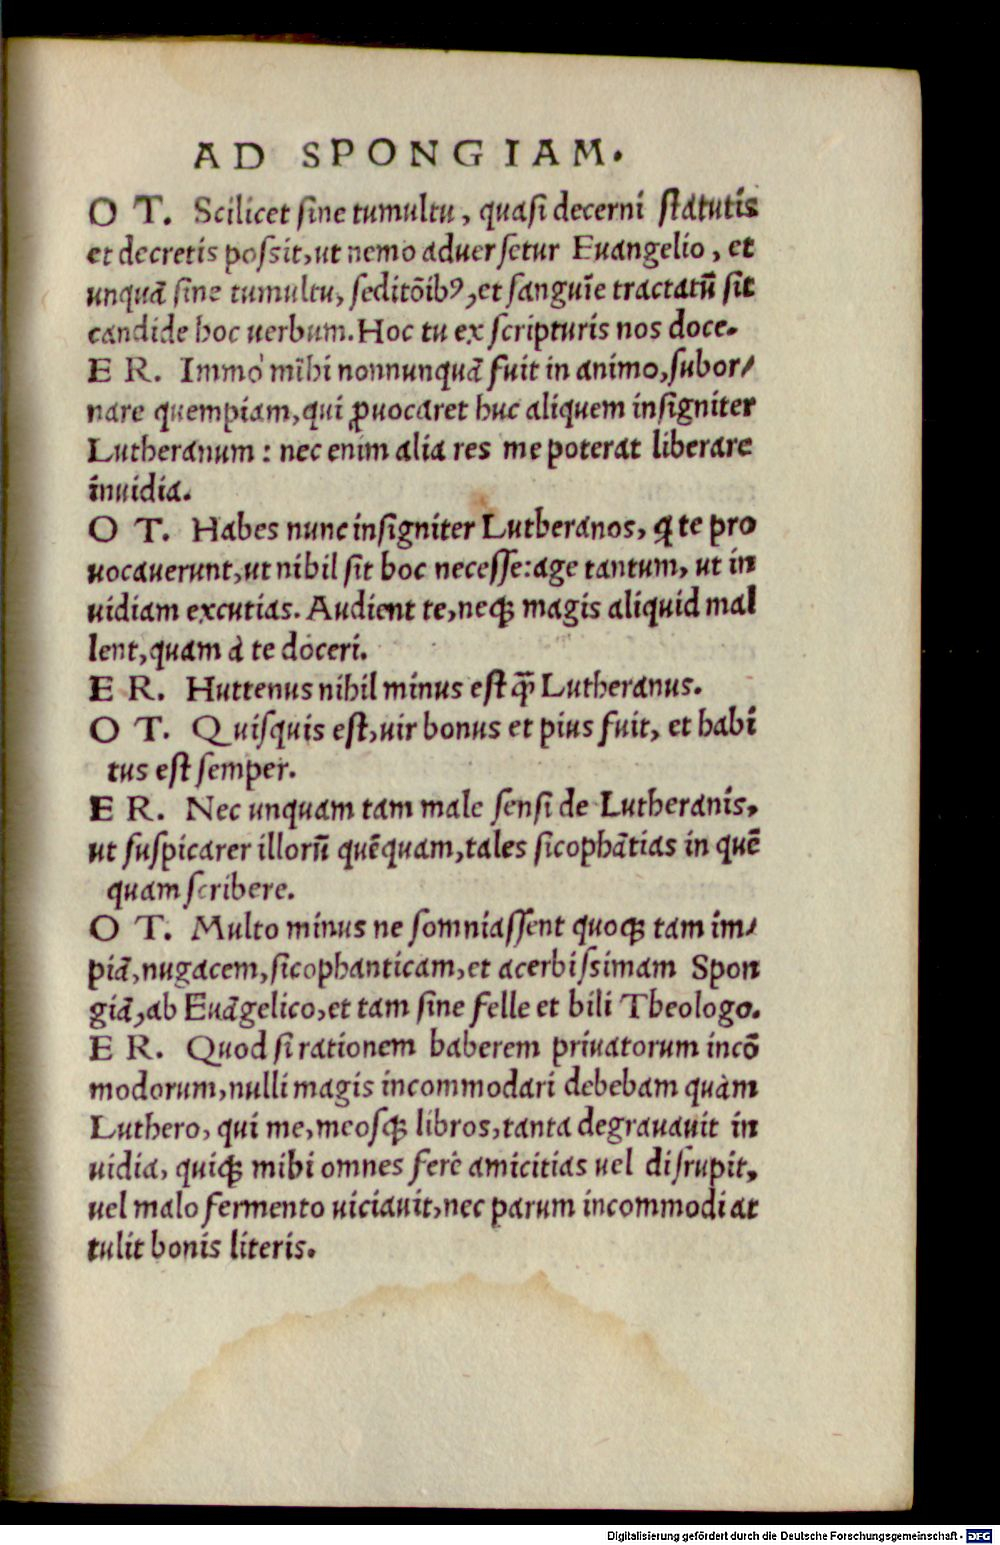 AD SPONGIAM.
O T. Scilicet sine tumultu, quasi decerni statutis
et decretis possit, ut nemo aduersetur Euangelio, et
unquā sine tumultu, seditōibꝰ, et sanguīe tractatū sit
candide hoc uerbum. Hoc tu ex scripturis nos doce.
E R. Immò mihi nonnunquā fuit in animo, subor/
nare quempiam, qui ꝓuocaret huc aliquem insigniter
Lutheranum: nec enim alia res me poterat liberare
inuidia.
O T. Habes nunc insigniter Lutheranos, q̄ te pro
uocauerunt, ut nihil sit hoc necesse: age tantum, ut in
uidiam excutias. Audient te, neqꝫ magis aliquid mal
lent, quam à te doceri.
E R. Huttenus nihil minus est q̄ Lutheranus.
O T. Quisquis est, uir bonus et pius fuit, et habi
tus est semper.
E R. Nec unquam tam male sensi de Lutheranis,
ut suspicarer illorū quēquam, tales sicophātias in quē
quam scribere.
O T. Multo minus ne somniassent quoqꝫ tam im/
piā, nugacem, sicophanticam, et acerbissimam Spon
giā, ab Euāgelico, et tam sine felle et bili Theologo.
E R. Quod si rationem haberem priuatorum incō
modorum, nulli magis incommodari debebam quàm
Luthero, qui me, meosqꝫ libros, tanta degrauauit in
uidia, quiqꝫ mihi omnes ferè amicitias uel disrupit,
uel malo fermento uiciauit, nec parum incommodi at
tulit bonis literis.
Digitalisierung gefördert durch die Deutsche Forschungsgemeinschaft - DFG